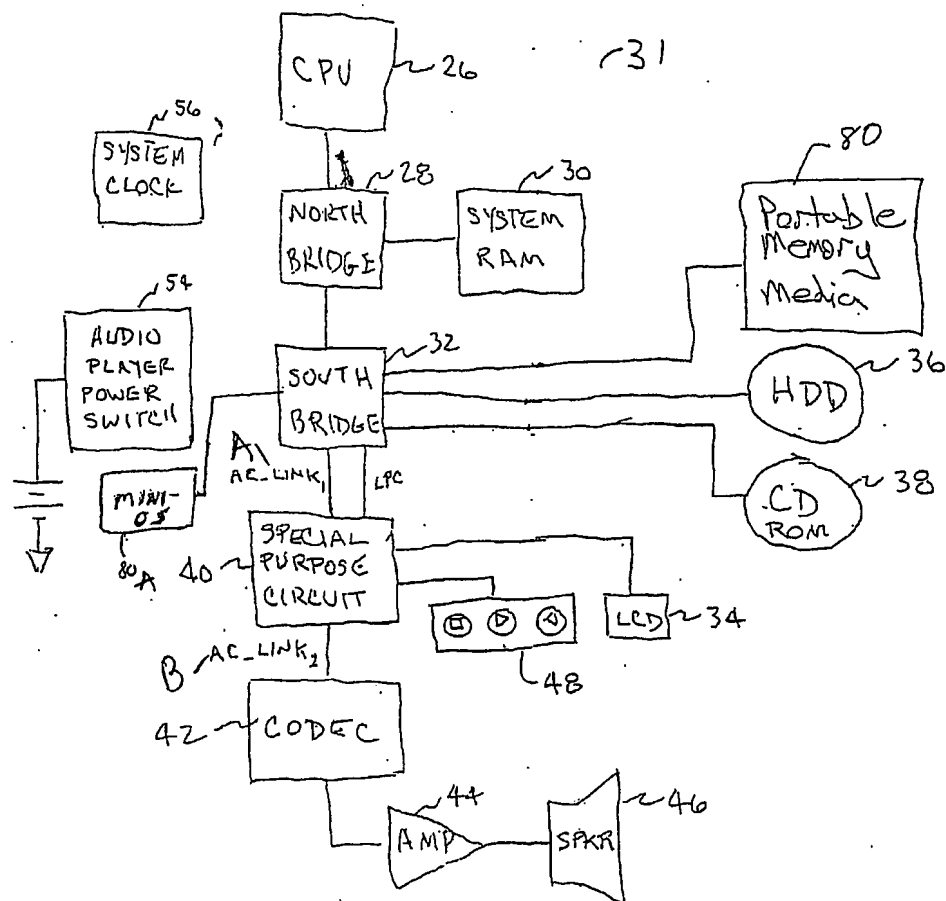 CPU
26
31
56
SYSTEM
CLOCK
28
NORTH
BRIDGE
30
SYSTEM
RAM
80
Portable
Memory
Media
54
AUDIO
PLAYER
POWER
SWITCH
32
SOUTH
BRIDGE
36
HDD
MINI-
OS
80A
A
AC_LINK1
LPC
38
CD
ROM
40
SPECIAL
PURPOSE
CIRCUIT
48
LCD
34
B
AC_LINK2
42
CODEC
44
AMP
46
SPKR